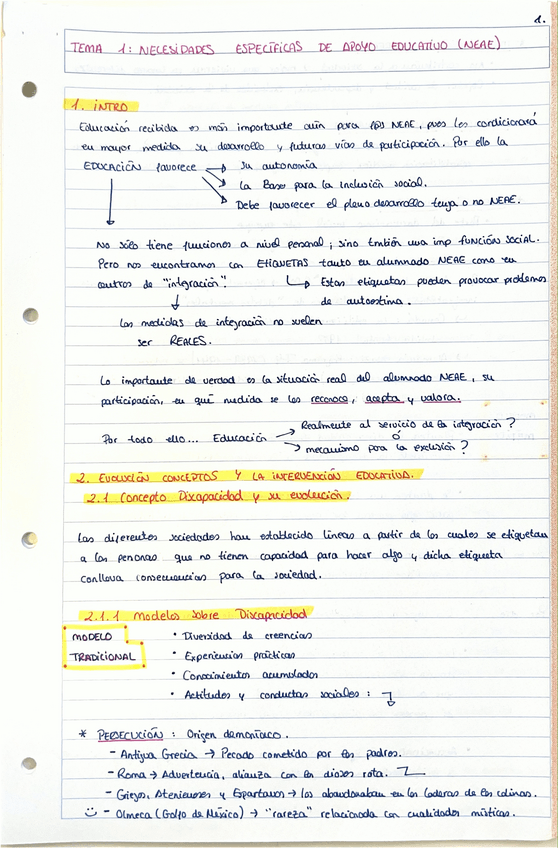 1.
TEMA 1: NECESIDADES ESPECÍFICAS DE APOYO EDUCATIVO (NEAE)
1. INTRO
Educación recibida es más importante aún para los NEAE, pues les condicionará
en mayor medida su desarrollo y futuras vías de participación. Por ello la
EDUCACIÓN favorece → su autonomía
la Base para la Inclusión social.
Debe favorecer el pleno desarrollo tenga o no NEAE.
No sólo tiene funciones a nivel personal; sino también una imp FUNCIÓN SOCIAL.
Pero nos encontramos con ETIQUETAS tanto en alumnado NEAE como en
centros de "integración".
↳ Estas etiquetas pueden provocar problemas
de autoestima.
Las medidas de integración no suelen
ser REALES.
Lo importante de verdad es la situación real del alumnado NEAE, su
participación, en qué medida se les reconoce, acepta y valora.
Realmente al servicio de la integración?
Por todo ello... Educación ó
mecanismo para la exclusión?
2. EVOLUCIÓN CONCEPTOS Y LA INTERVENCIÓN EDUCATIVA.
2.1 Concepto Discapacidad y su evolución.
Las diferentes sociedades han establecido líneas a partir de las cuales se etiquetan
a las personas que no tienen capacidad para hacer algo y dicha etiqueta
conlleva consecuencias para la sociedad.
2.1.1 Modelos sobre Discapacidad
MODELO
TRADICIONAL
• Diversidad de creencias
• Experiencias prácticas
• Conocimientos acumulados
• Actitudes y conductas sociales:
* PERSECUCIÓN: Origen demoníaco.
- Antigua Grecia → Pecado cometido por los padres.
- Roma → Advertencia, alianza con los dioses rota.
- Griegos, Atenienses y Espartanos → los abandonaban en las laderas de las colinas.
- Olmeca (Golfo de México) → "rareza" relacionada con cualidades místicas.